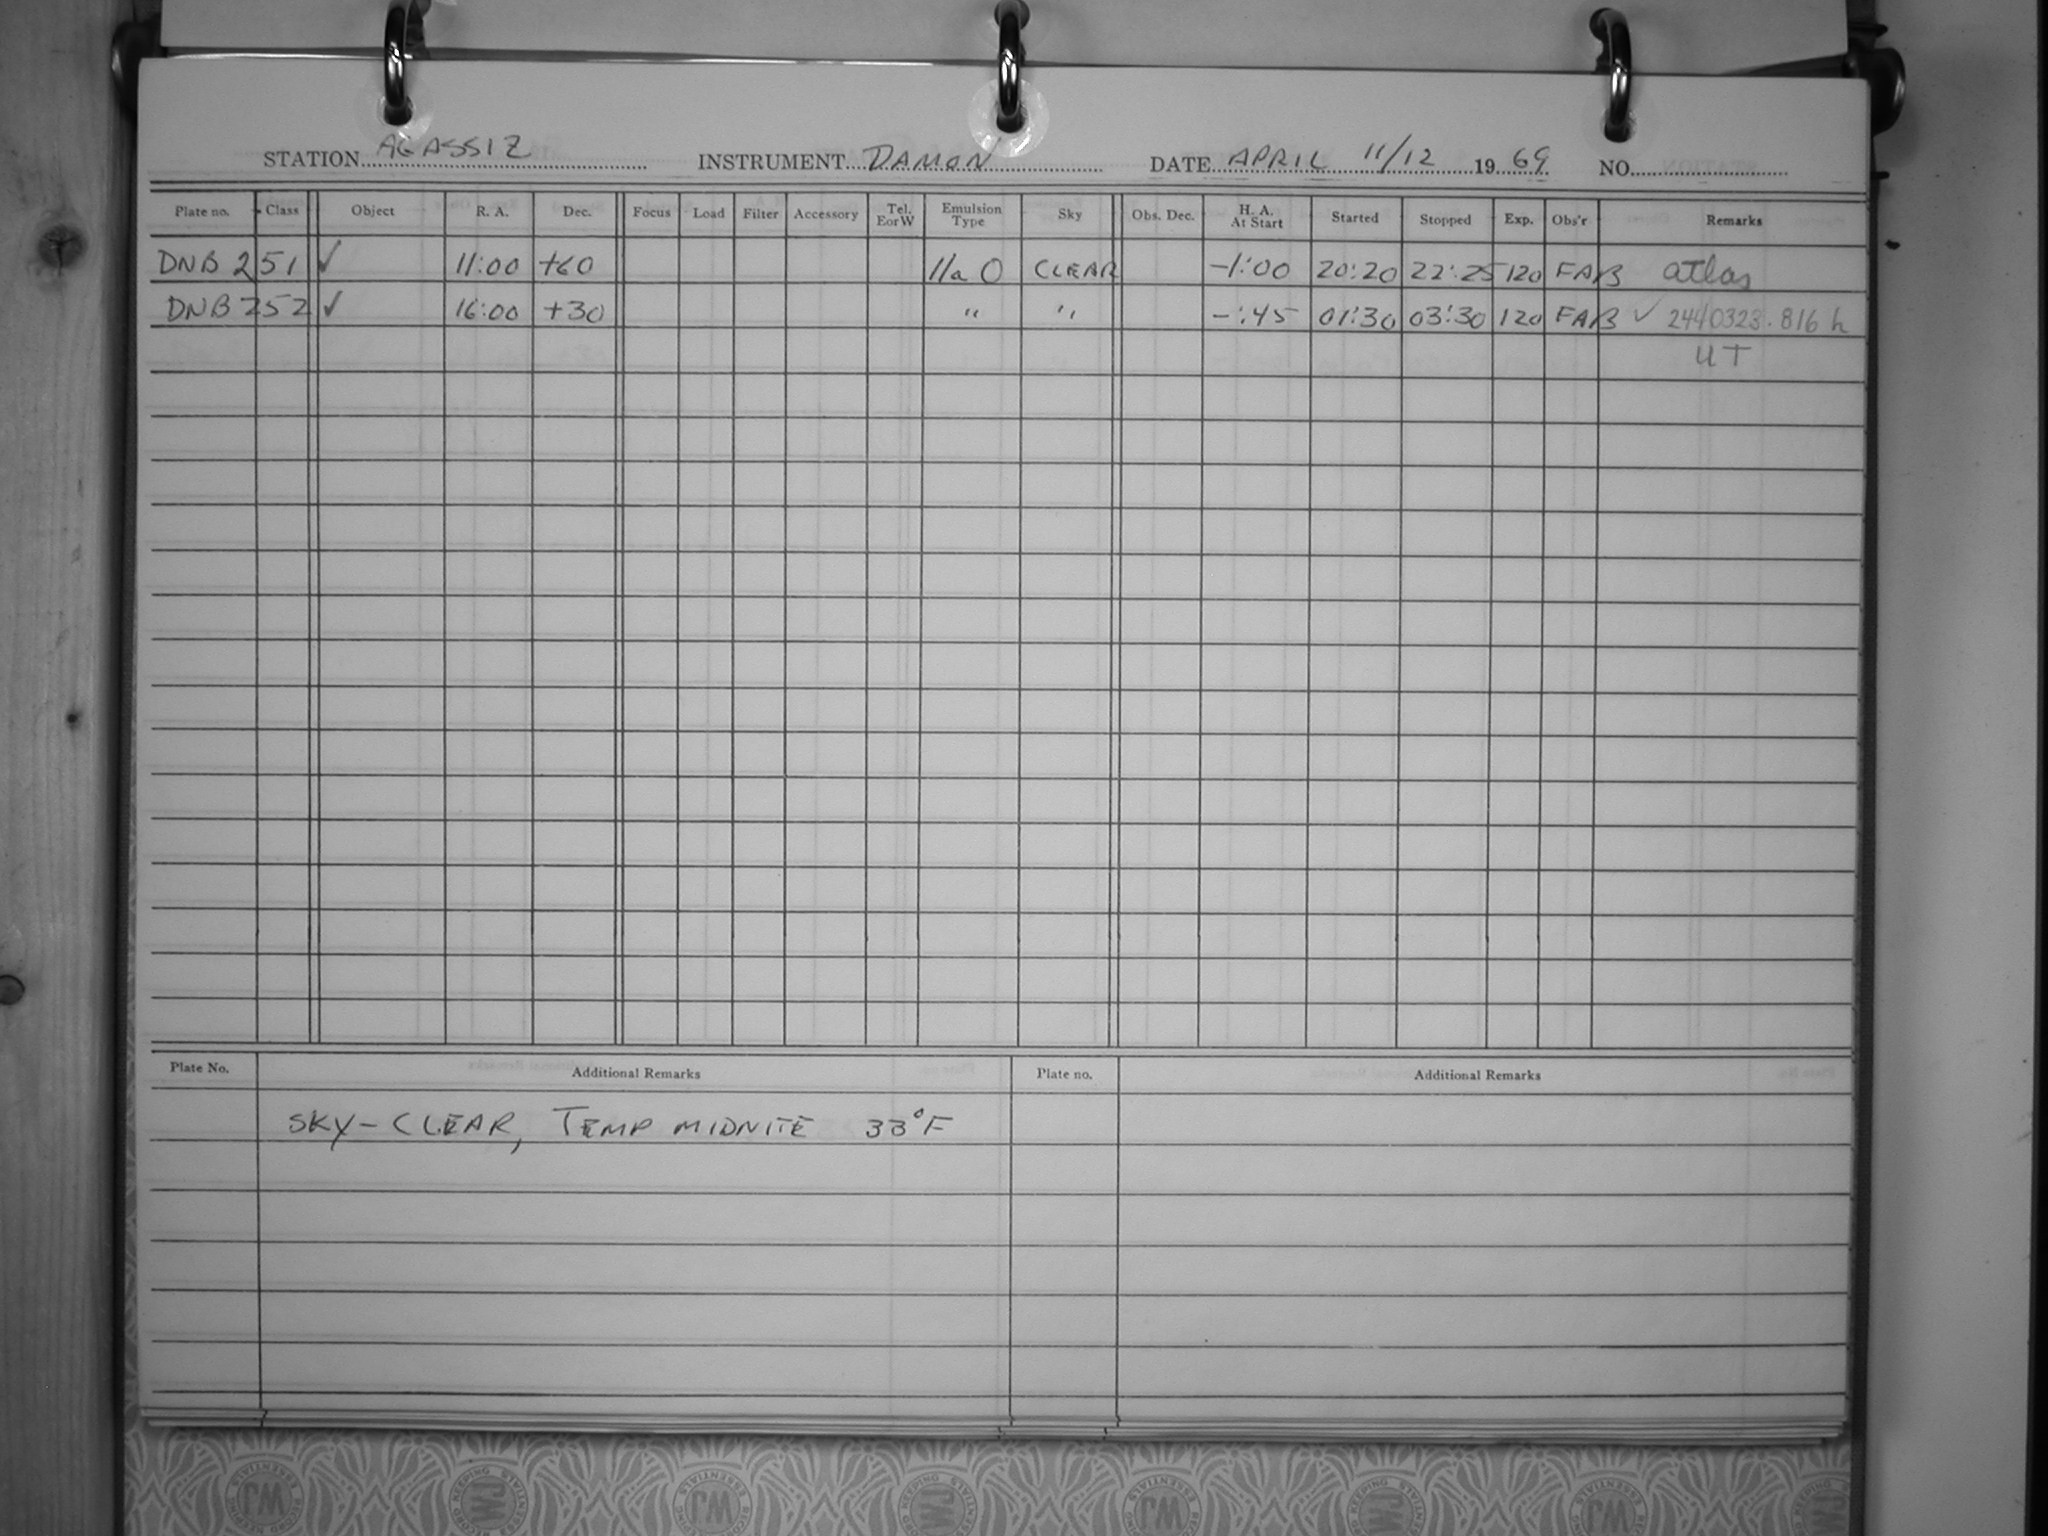 STATION AGASSIZ INSTRUMENT DAMON DATE APRIL 11/12 1969 NO.
Plate no. Class Object R. A. Dec. Focus Load Filter Accessory Tel. E or W Emulsion Type Sky Obs. Dec. H. A. At Start Started Stopped Exp. Obs'r Remarks
DNB 251 ✓ 11:00 +60 IIa O CLEAR -1:00 20:20 22:25 120 FAB atlas
DNB 252 ✓ 16:00 +30 " " -:45 01:30 03:30 120 FAB ✓ 2440323.816 h
UT
Plate No. Additional Remarks Plate no. Additional Remarks
SKY-CLEAR, TEMP MIDNITE 33°F